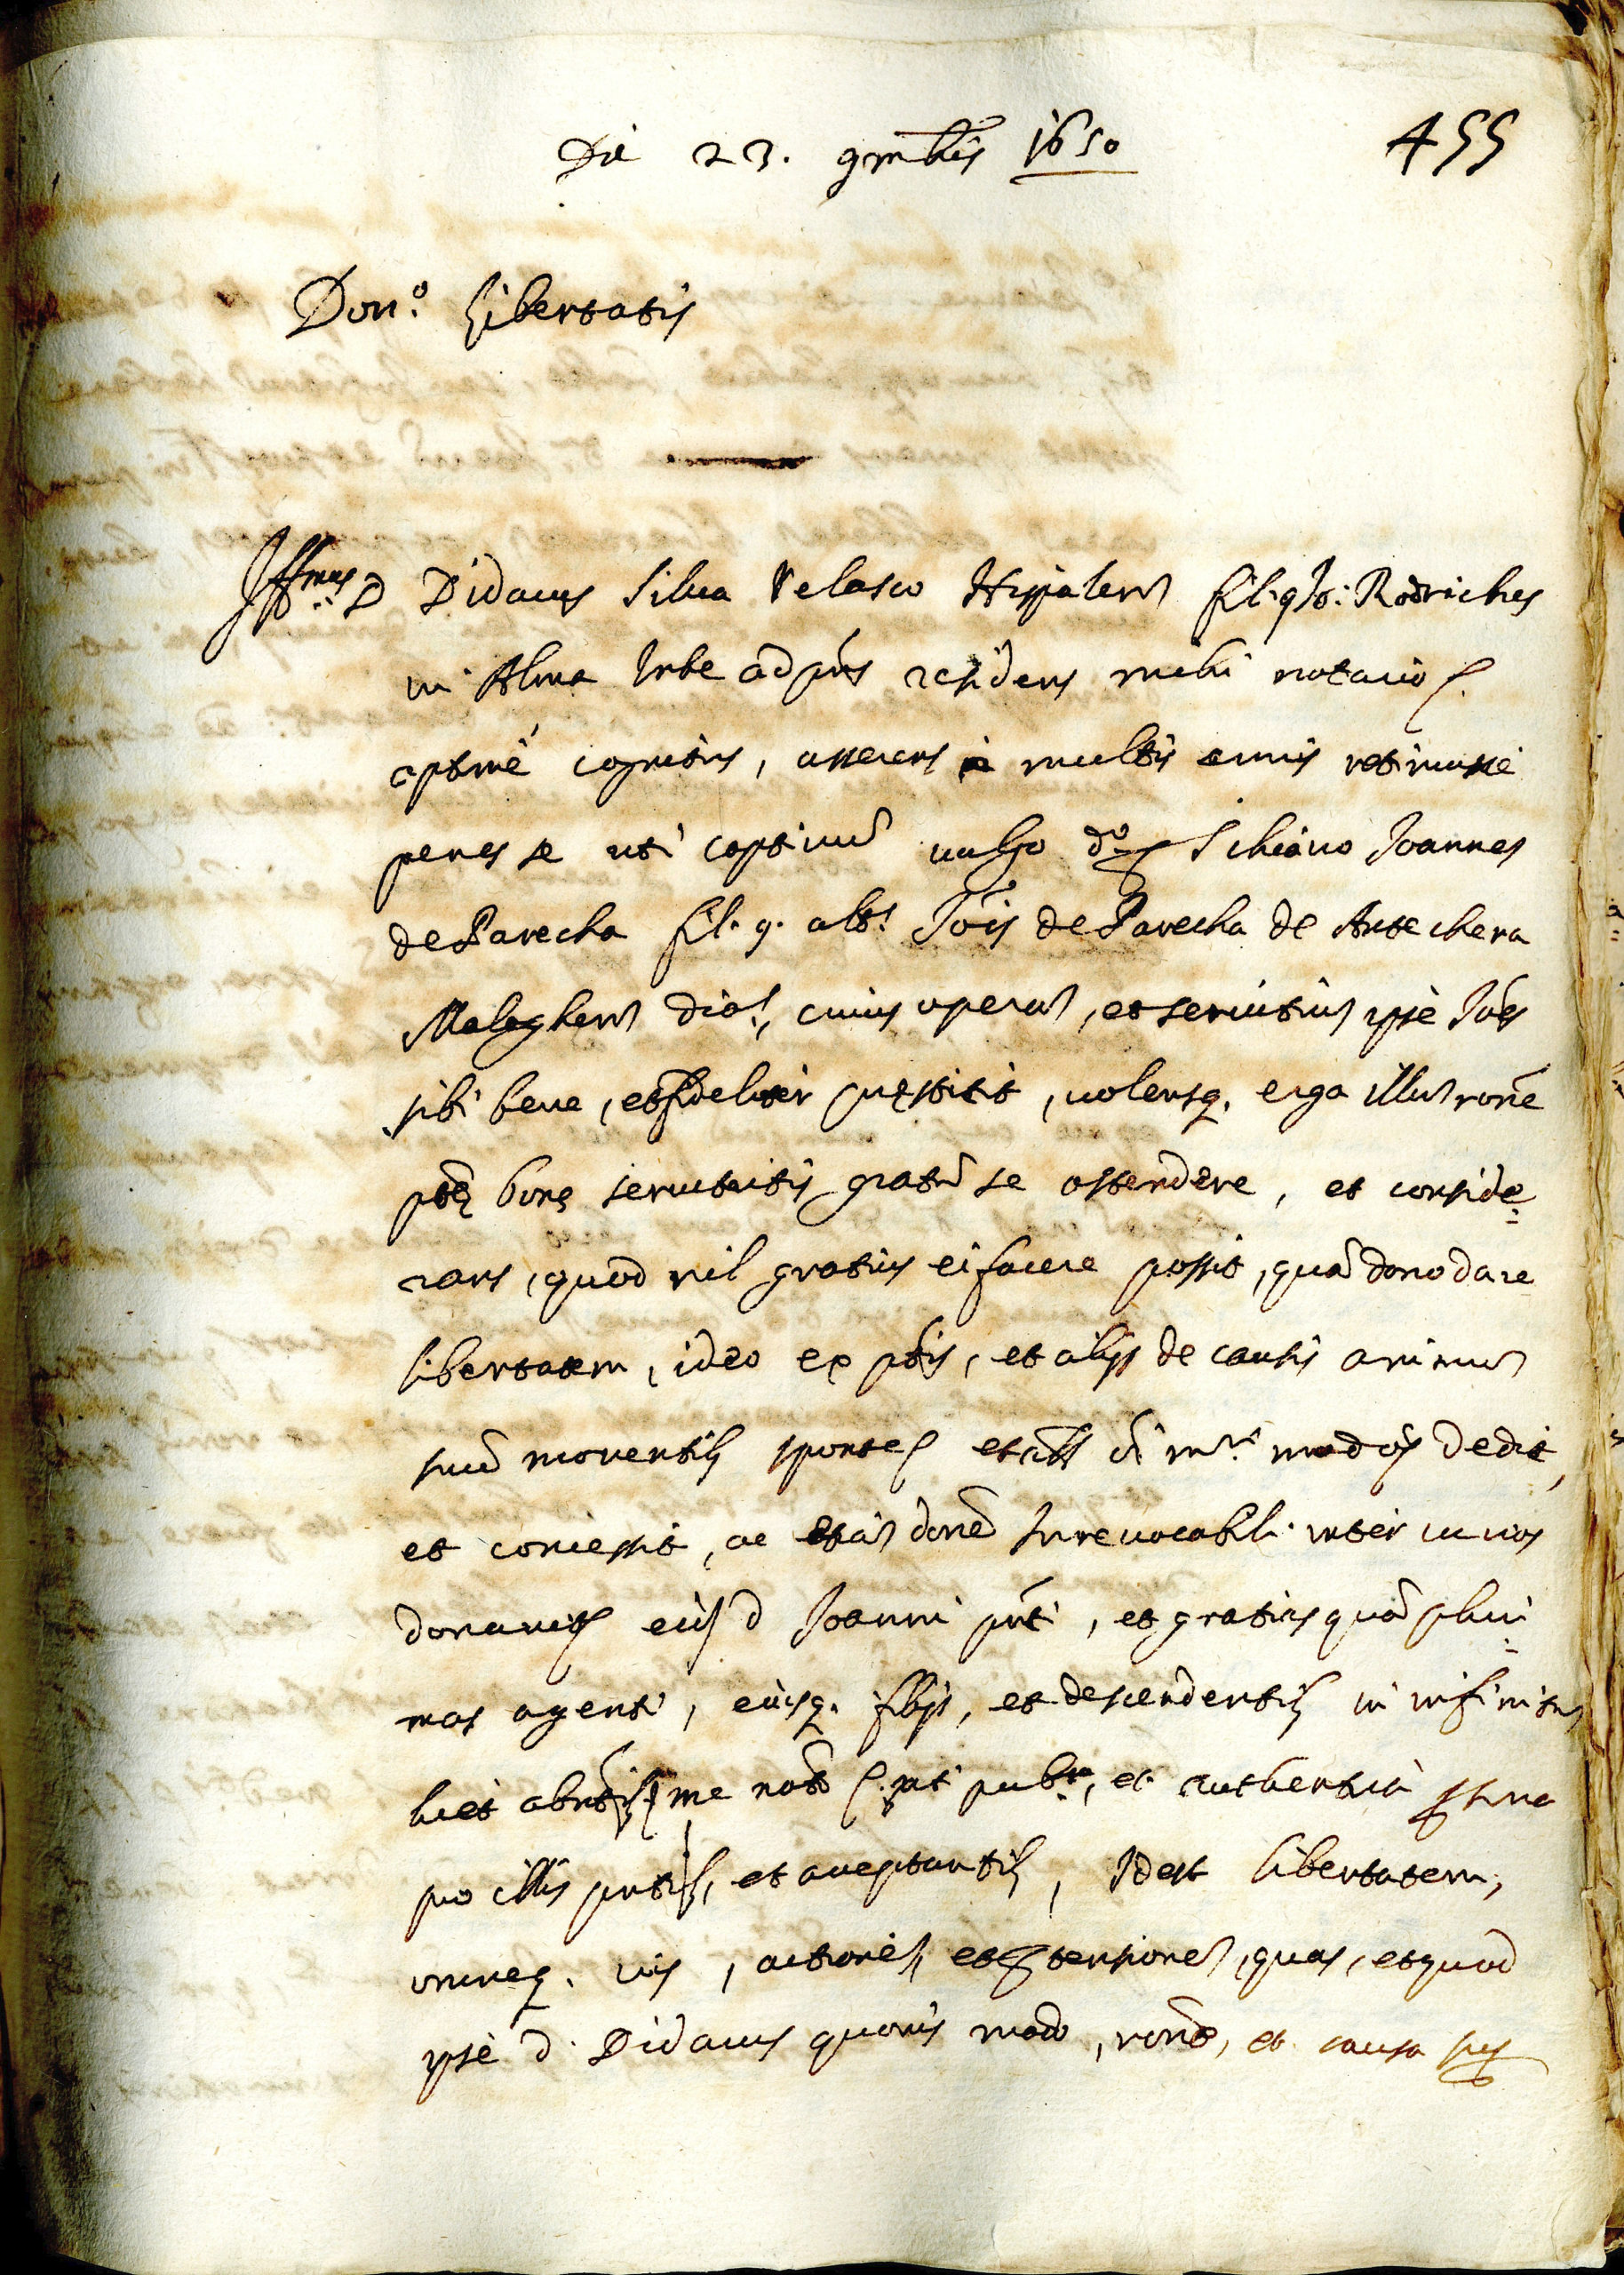 Die 23. 9mbris 1650 455
Don.o libertatis
Ill.mus D Didacus Silua Velasco Hispalen fil. q Jo: Rodriches
in Alma Urbe ad pns residens mihi notario
optimè cognitus, asserens à multis annis retinuisse
penes se uti captiuũ uulgo d.o Schiauo Joannes
de Parecha fil. q. alt.s Jois de Parecha de Antechera
Malaghen dioc., cuius operam, et seruitium ipse Joes
sibi bene, et fideliter prestitit, uolensq. erga illum rone
pte bone seruitutis gratũ se ostendere, et conside=
rans, quod nil gratius ei facere possit, quã dono dare
libertatem, ideo ex ptis, et alijs de causis animum
suũ mouentib sponte et oi m.ri modo dedit,
et concessit, ac titulo donõis Irreuocabilr. inter uiuos
donauit eid Joanni pnti, et gratias quã pluri=
mas agenti, eiusq. filijs, et descendentib in infinitum
licet absntib, me not.o uti pub.ca, et authentica psona
pro illis pntib, et acceptantib, Idest libertatem,
omneq. ius, actiones, et ptensiones, quas, et quod
ipse d. Didacus quouis modo, rone, et causa sup